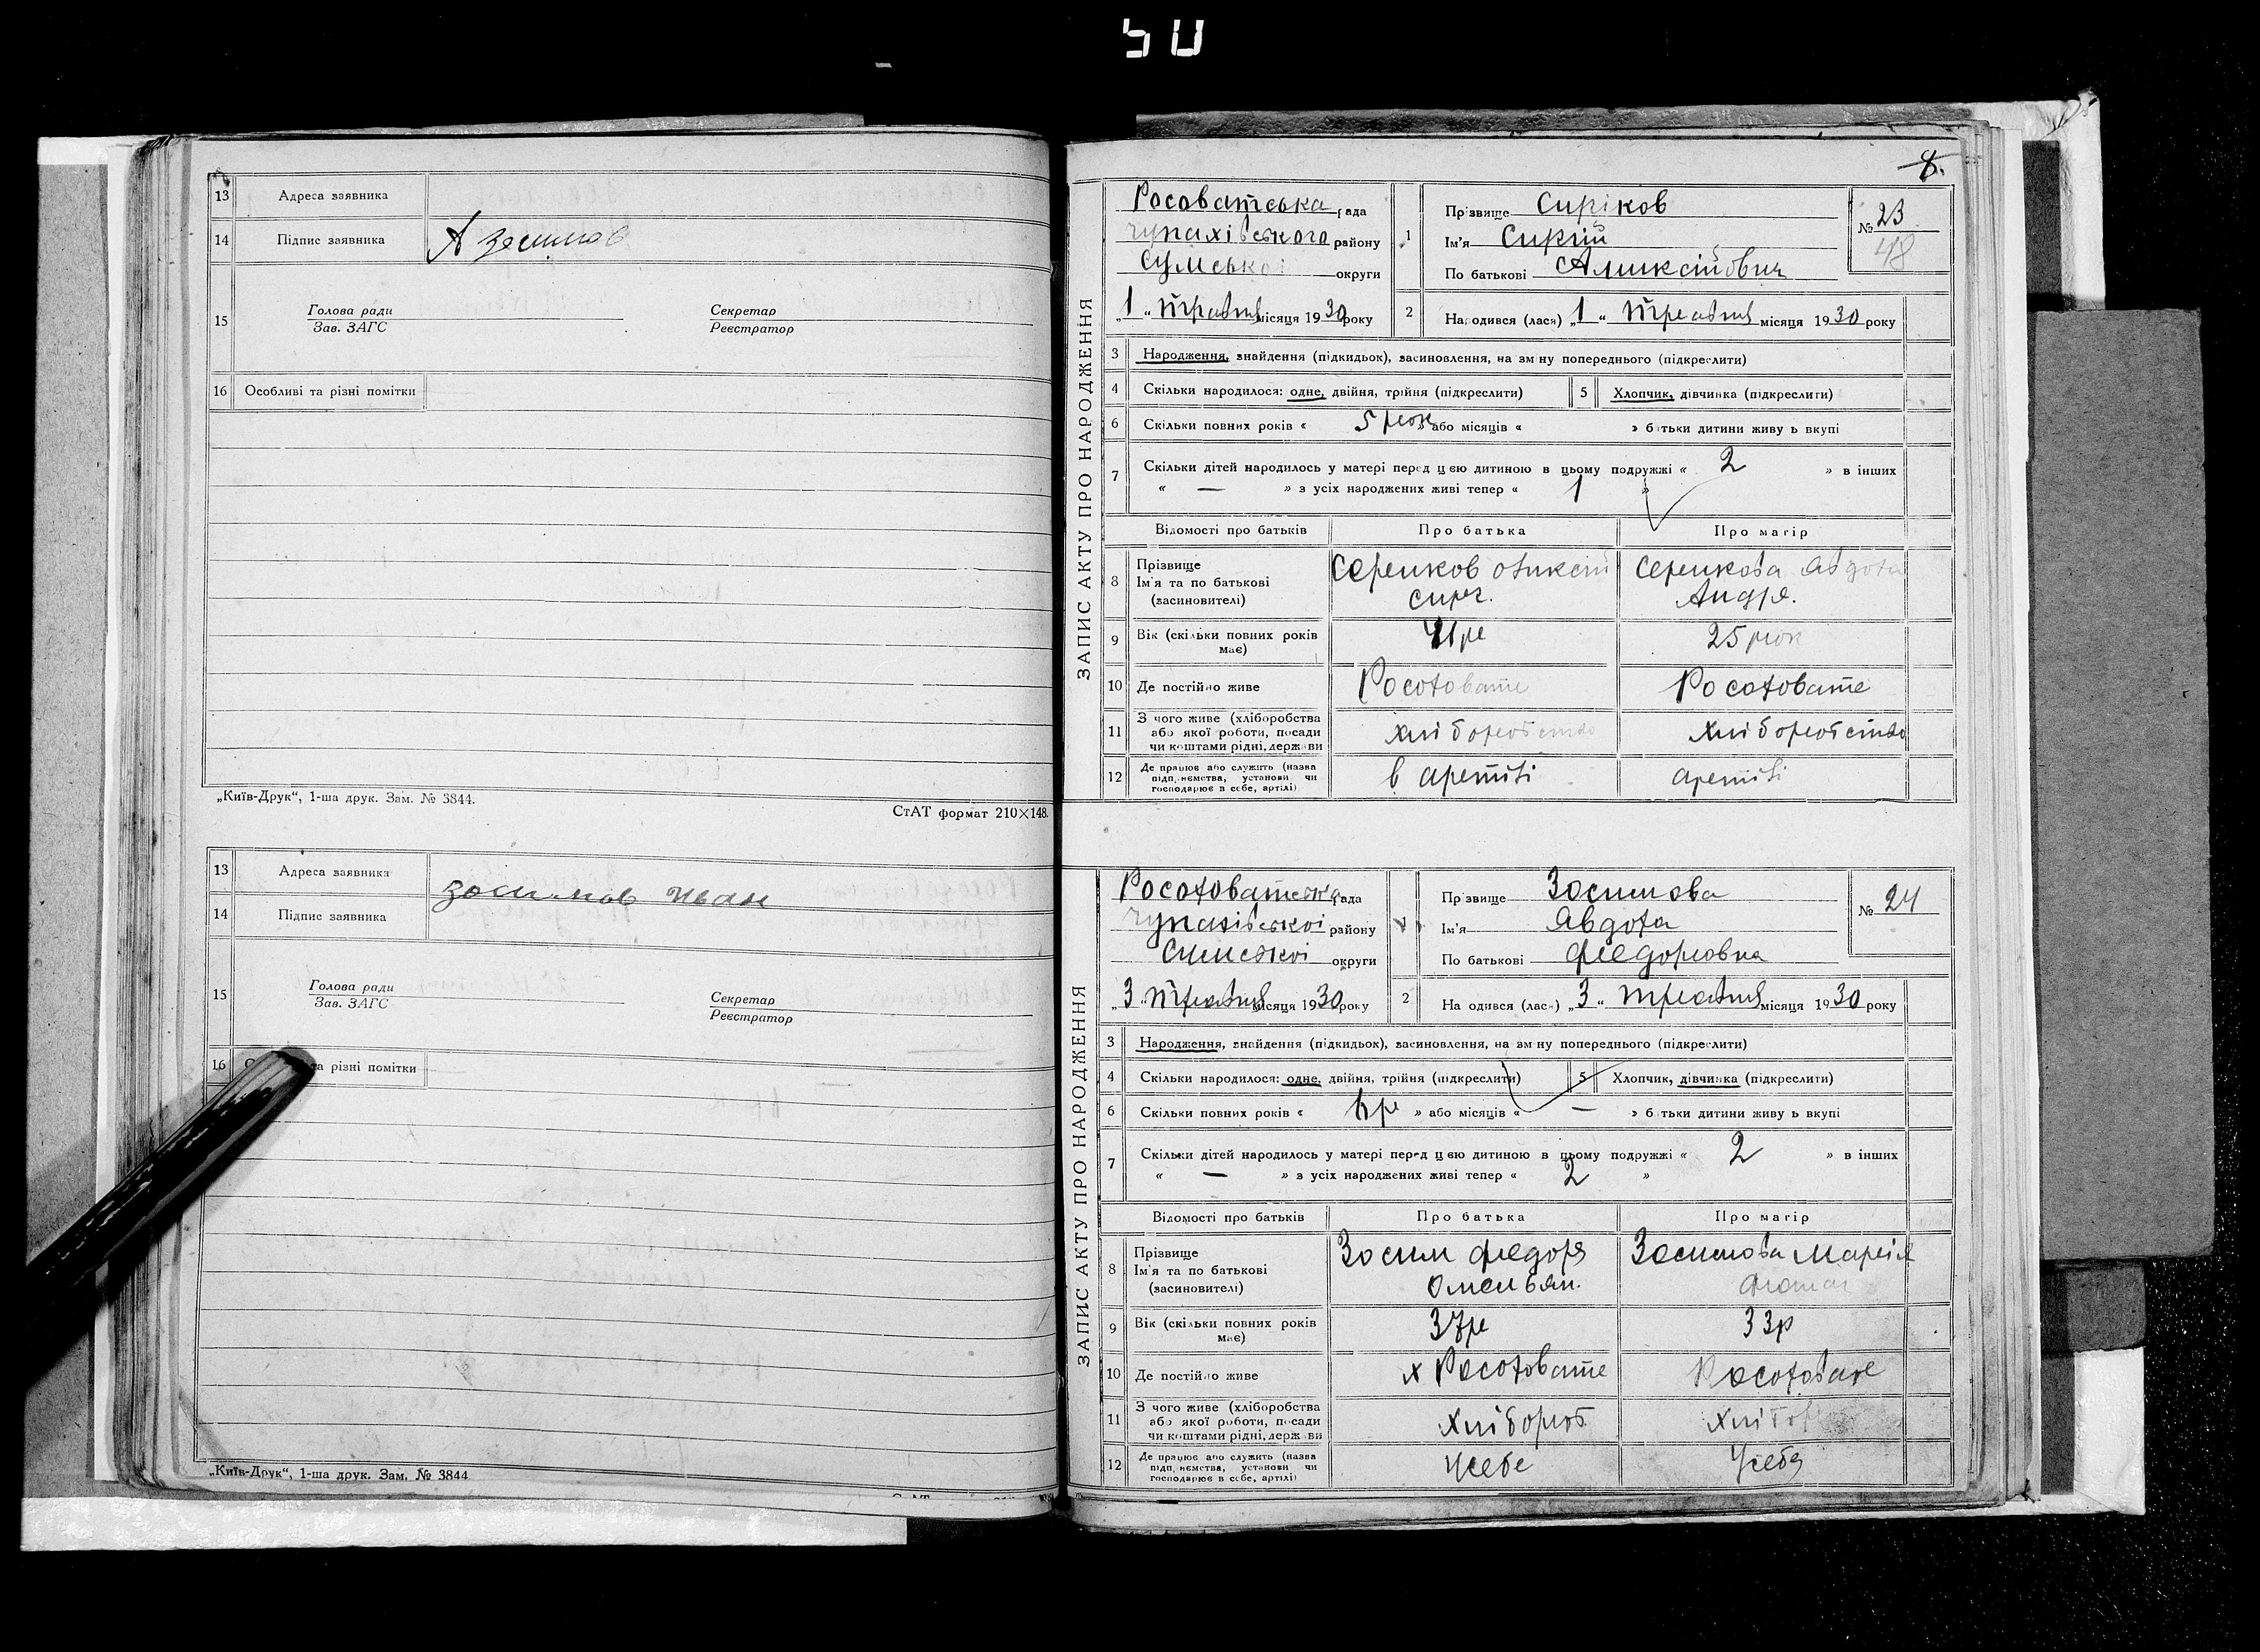 50
13 Адреса заявника
14 Підпис заявника А Зосимов
15 Голова ради
Зав. ЗАГС
Секретар
Реєстратор
16 Особливі та різні помітки
„Київ-Друк“, 1-ша друк. Зам. № 3844.
СтАТ формат 210×148.
13 Адреса заявника
14 Підпис заявника Зосимов Иван
15 Голова ради
Зав. ЗАГС
Секретар
Реєстратор
16 та різні помітки
„Київ-Друк“, 1-ша друк. Зам. № 3844
8.
ЗАПИС АКТУ ПРО НАРОДЖЕННЯ
Росоватська рада
чупахівського району
Сумської округи
„1“ травня місяця 1930 року
1 Прізвище Сиріков
Ім'я Сиргій
По батькові Аликсійович
№ 23
48
2 Народився (лася) „1“ травня місяця 1930 року
3 Народження, знайдення (підкидьок), засиновлення, на зміну попереднього (підкреслити)
4 Скільки народилося: одне, двійня, трійня (підкреслити) 5 Хлопчик, дівчинка (підкреслити)
6 Скільки повних років « 5 рок » або місяців « » батьки дитини живуть вкупі
7 Скільки дітей народилось у матері перед цією дитиною в цьому подружжі « 2 » в інших
« — » з усіх народжених живі тепер « 1 »
Відомості про батьків Про батька Про матір
8 Прізвище
Ім'я та по батькові
(засиновителі)
Серіков Оликсій
Сирг.
Серікова Авдотя
Андре.
9 Вік (скільки повних років має) 25 рок
10 Де постійно живе Росоховате Росоховате
11 З чого живе (хліборобства
або якої роботи, посади
чи коштами рідні, держави
хліборобство хліборобство
12 Де працює або служить (назва
підприємства, установи чи
господарює в себе, артілі)
в аретілі аретілі
ЗАПИС АКТУ ПРО НАРОДЖЕННЯ
Росоховатська рада
чупахівської району
Сумської округи
„3“ травня місяця 1930 року
1 Прізвище Зосимова
Ім'я Явдоха
По батькові Федоровна
№ 24
2 Народився (лася) „3“ травня місяця 1930 року
3 Народження, знайдення (підкидьок), засиновлення, на зміну попереднього (підкреслити)
4 Скільки народилося: одне, двійня, трійня (підкреслити) 5 Хлопчик, дівчинка (підкреслити)
6 Скільки повних років « » або місяців « — » батьки дитини живуть вкупі
7 Скільки дітей народилось у матері перед цією дитиною в цьому подружжі « 2 » в інших
« — » з усіх народжених живі тепер « 2 »
Відомості про батьків Про батька Про матір
8 Прізвище
Ім'я та по батькові
(засиновителі)
Зосим Федоря
Омельян.
Зосимова Марія
9 Вік (скільки повних років має) 37р 33р
10 Де постійно живе х Росоховате Росоховате
11 З чого живе (хліборобства
або якої роботи, посади
чи коштами рідні, держави
хлібороб
12 Де працює або служить (назва
підприємства, установи чи
господарює в себе, артілі)
Усебе Усебя